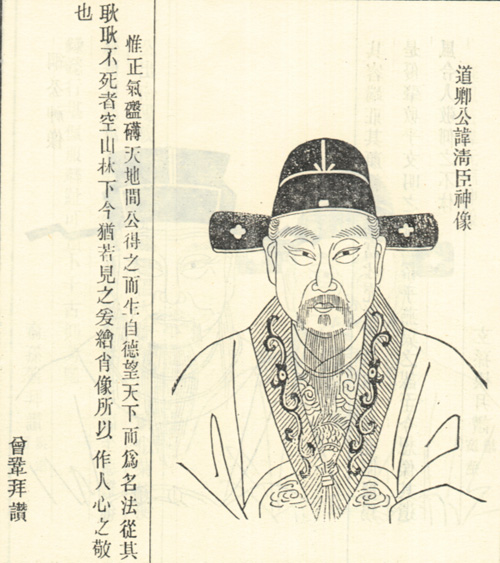 道卿公諱清臣神像
惟正氣磅礴天地間公得之而生自德望天下而為名法從其
耿耿不死者空山林下今猶若見之爰繪肖像所以作人心之敬
也
曾鞏拜讚